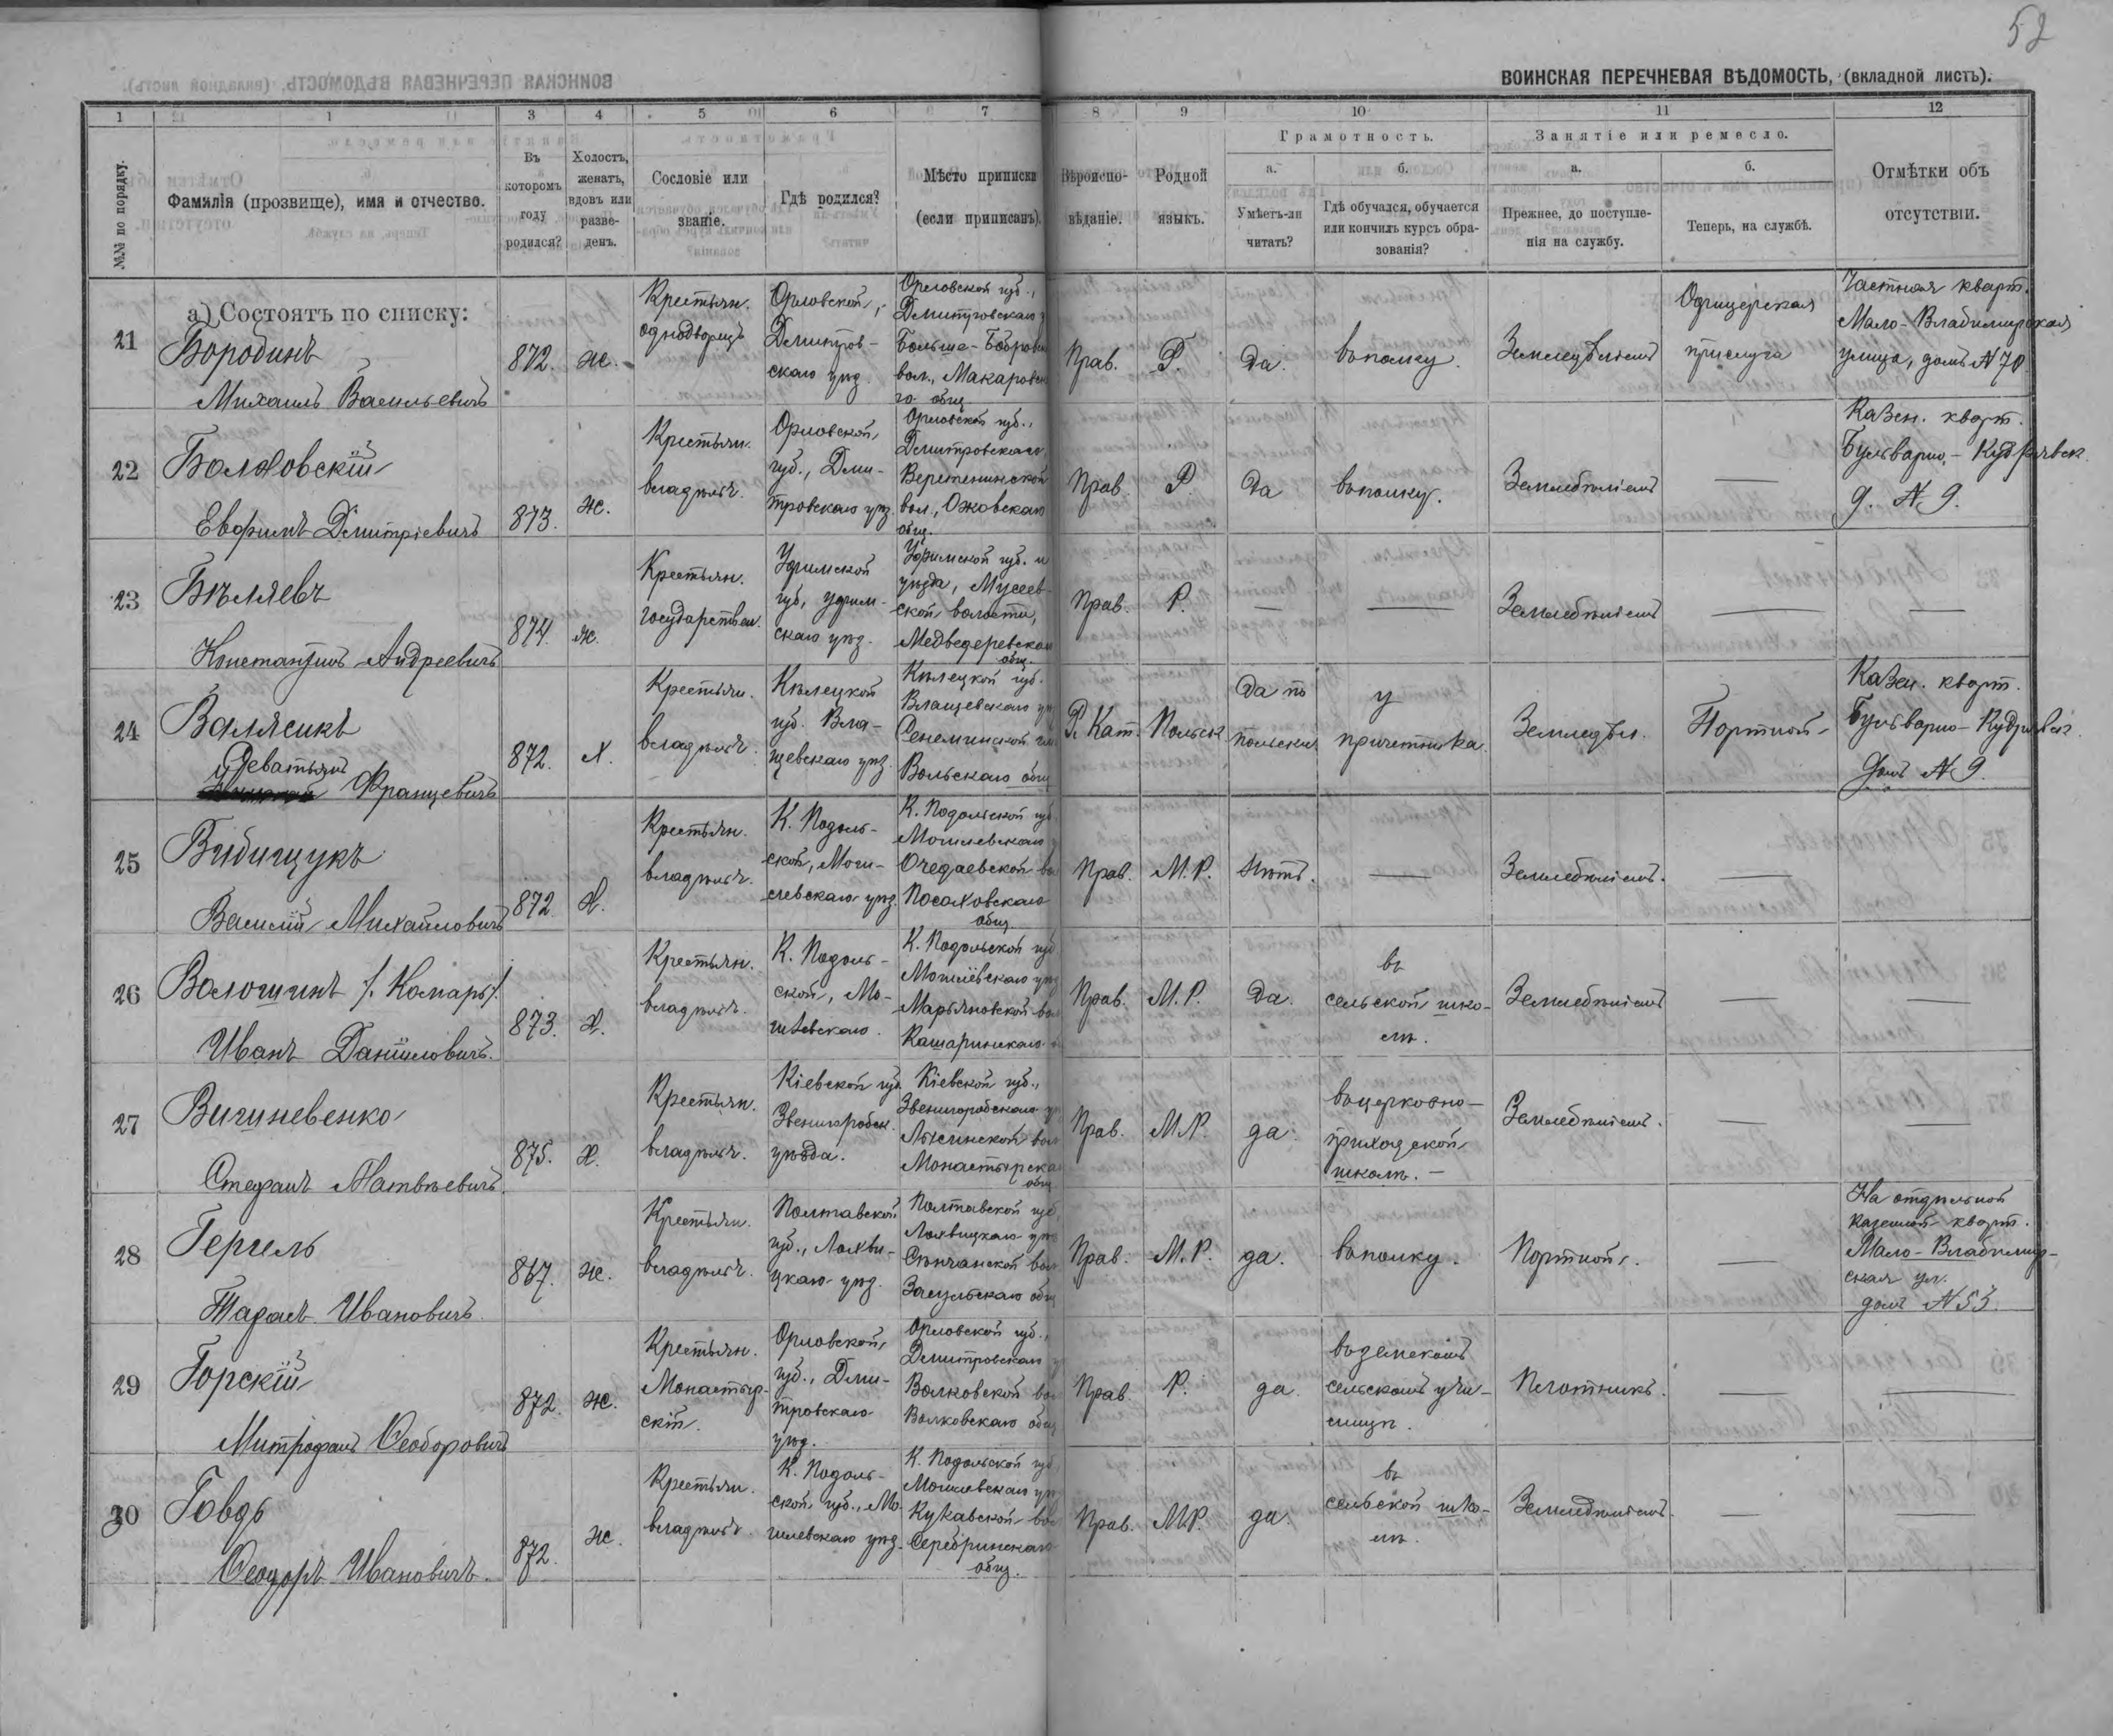 52
ВОИНСКАЯ ПЕРЕЧНЕВАЯ ВѢДОМОСТЬ, (вкладной листъ).
1 1 3 4 5 6 7 8 9 10 11 12
№№ по порядку.
Фамилія (прозвище), имя и отчество.
Въ которомъ году родился?
Холостъ, женатъ, вдовъ или разведенъ.
Сословіе или званіе.
Гдѣ родился?
Мѣсто приписки (если приписанъ).
Вѣроисповѣданіе.
Родной языкъ.
Грамотность.
а. Умѣетъ-ли читать?
б. Гдѣ обучался, обучается или кончилъ курсъ образованія?
Занятіе или ремесло.
а. Прежнее, до поступленія на службу.
б. Теперь, на службѣ.
Отмѣтки объ отсутствіи.
а) Состоятъ по списку:
21
Бородинъ
Михаилъ Васильевичъ
872. ж.
Крестьян.
однодворцъ
Орловской,
Дмитров-
скаго уѣзд.
Орловской губ.,
Дмитровскаго
Больше-Бобровск
вол., Макаровска
го общ.
Прав. Р. Да. въ полку. Земледѣліемъ
Офицерская
прислуга
Частная кварт.
Мало-Владимирская
улица, домъ № 70
22
Болховскій
Евфимъ Дмитріевичъ
873. ж.
Крестьян.
владѣльч.
Орловской
губ., Дми-
тровскаго уѣз.
Орловской губ.,
Дмитровскаго
Веретенинской
вол., Ожовскаго
общ.
Прав. Р. Да въ полку. Земледѣліемъ —
Казен. кварт.
Бульварно-Кудрявск.
д. № 9.
23
Бѣляевъ
Константинъ Андреевичъ
874. ж.
Крестьян.
государствен.
Уфимской
губ., уфим-
скаго уѣзд.
Уфимской губ. и
уѣзда,
ской волости,
общ.
Прав. Р. — — Земледѣліемъ — —
24
Валясикъ
Францевичъ
872. х.
Крестьян.
владѣльч.
Кѣлецкой
губ. Вла-
щевскаго уѣз.
Кѣлецкой губ.
Влащевскаго уѣз
Вольскаго общ
Р. Кат. Польск
Да по
польски
у
причетника.
Земледѣл. Портной
Казен. кварт.
Бульварно-Кудрявск.
Домъ № 9.
25
Вибищукъ
Василій Михайловичъ
872 х.
Крестьян.
владѣльч.
К. Подоль-
ской, Моги-
левскаго уѣз.
К. Подольской губ.
Могилевскаго
во
общ.
Прав. М.Р. Нѣтъ. — Земледѣліемъ. —
26
Волошинъ /. Комаръ/.
Иванъ Даніиловичъ.
873. х.
Крестьян.
владѣльч.
К. Подоль-
ской, Мо-
гилевскаго.
К. Подольской губ
Могилевскаго уѣз
Марьяновской вол
Кашаринскаго
Прав. М.Р. Да.
въ
сельской шко-
лѣ.
Земледѣліемъ — —
27
Вигиневенко
Стефанъ Матвѣевичъ
875. х.
Крестьян.
владѣльч.
Кіевской губ.
Звенигородск.
уѣзда.
Кіевской губ.,
Звенигородскаго
Лысинской вол
Монастырска
общ
Прав. М.Р. да.
въ церковно-
приходской
школѣ. —
Земледѣліемъ. — —
28
Гергель
Тарасъ Ивановичъ.
867. ж.
Крестьян.
владѣльч.
Полтавской
губ., Лохви-
цкаго уѣзд.
Полтавской губ,
Лохвицкаго уѣз
Сѣнчанской вол
Засульскаго общ
Прав. М.Р. да. въ полку. Портной. —
На отдѣльной
казенной кварт.
Мало-Владимир-
ская ул.
домъ № 53.
29
Горскій
Митрофанъ Ѳеодоровичъ
872. ж.
Крестьян.
Монастыр-
скій.
Орловской
губ., Дми-
тровскаго
уѣзд.
Орловской губ.,
Дмитровскаго
Волковской во
Волковскаго общ
Прав. Р. да.
въ земскомъ
сельскомъ учи-
лищѣ.
Плотникъ. — —
30
Говдь
Ѳеодоръ Ивановичъ.
872. ж.
Крестьян.
владѣльч.
К. Подоль-
ской губ., Мо-
гилевскаго уѣз.
К. Подольской губ,
Могилевскаго уѣз
Кукавской во
Серебринскаго
общ.
Прав. М.Р. да.
въ
сельской шко-
лѣ.
Земледѣліемъ. — —